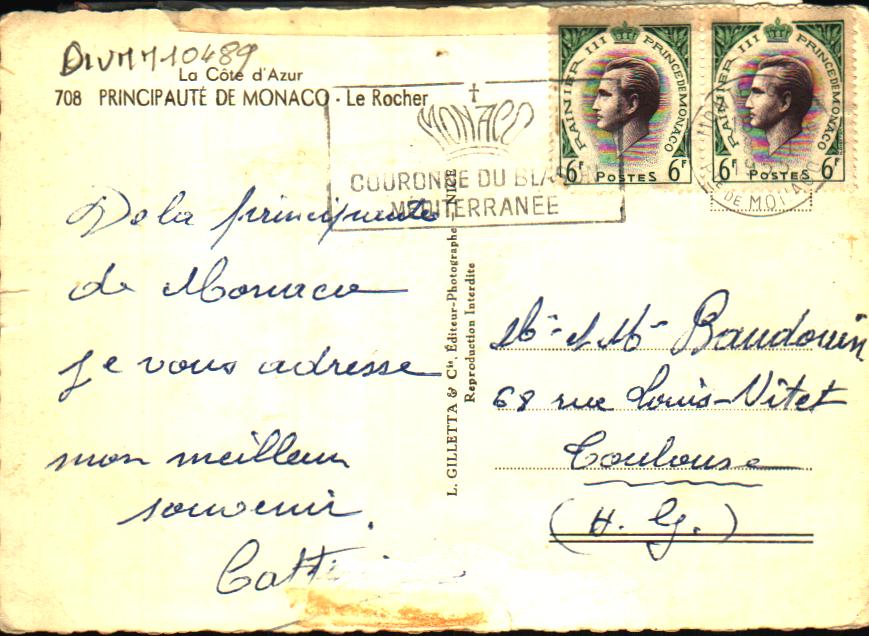 DIVM110489
La Côte d'Azur
708 PRINCIPAUTÉ DE MONACO - Le Rocher
MONACO
COURONNE DU
MÉDITERRANÉE
RAINIER III PRINCE DE MONACO
6F POSTES 6F
RAINIER III PRINCE DE MONACO
6F POSTES 6F
DE MONACO
De la principauté
de Monaco
je vous adresse
mon meilleur
souvenir.
L. GILLETTA & Cie, Éditeur-Photographe, NICE
Reproduction Interdite
Mr et Me Baudouin
68 rue Louis-Vitet
Toulouse
(H. G.)